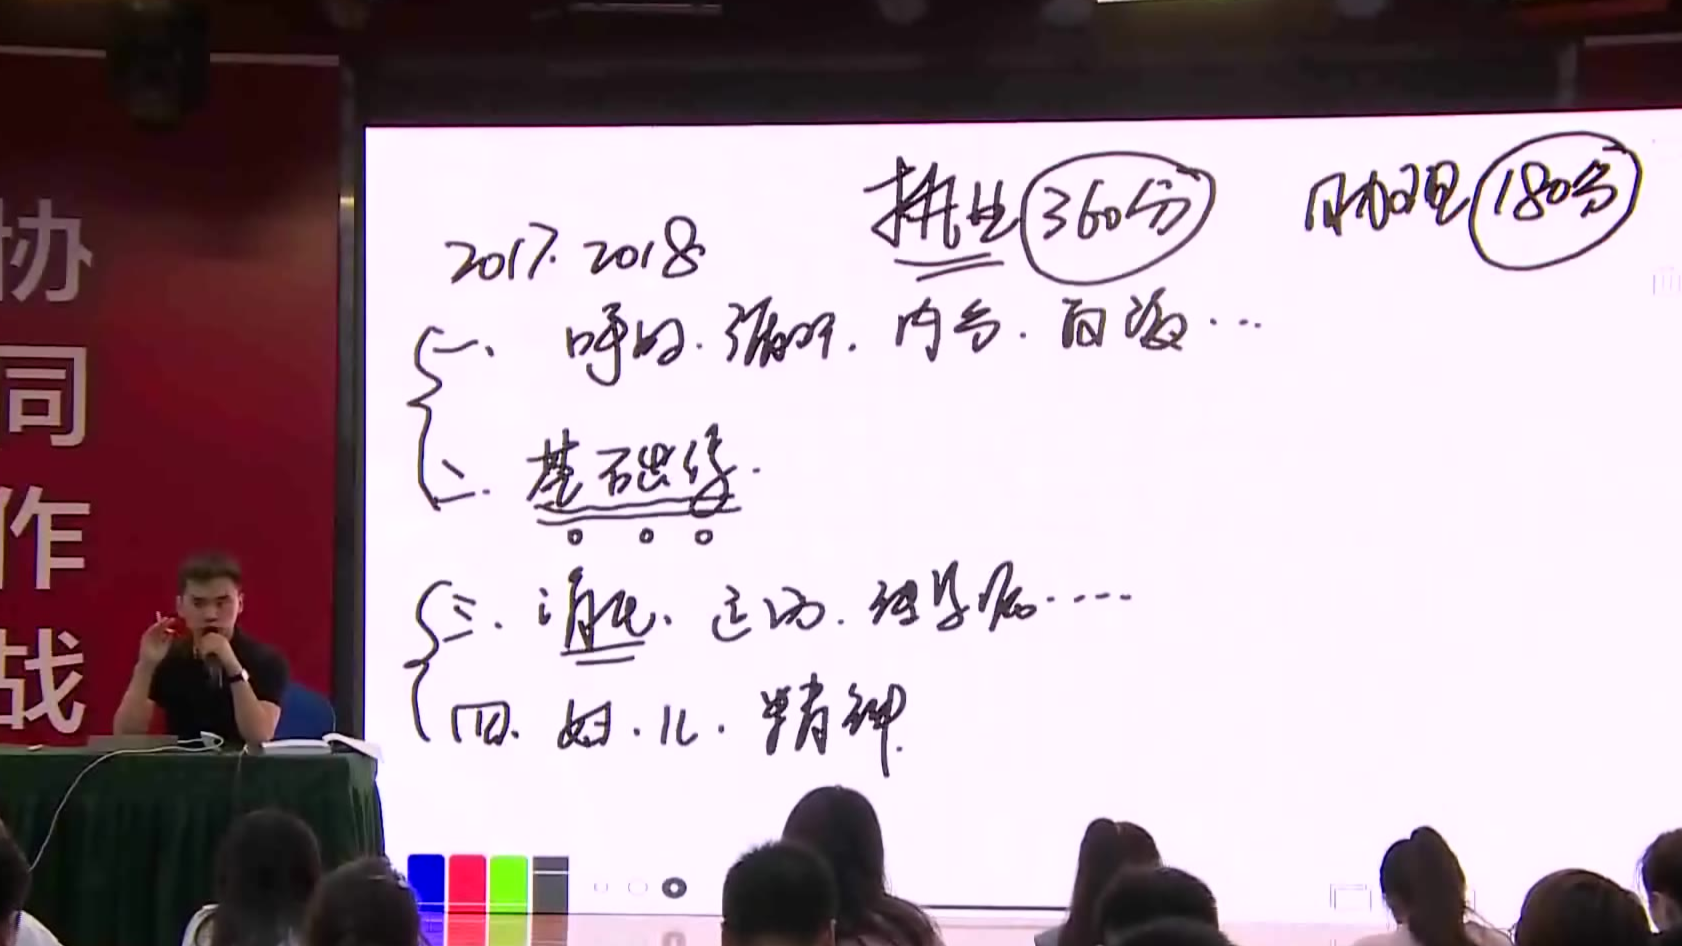 协同作战
2017. 2018
执业 360分
助理 180分
一、 呼吸. 循环. 内分. 血液…
二. 基础综.
三. 消化、运动. 传染病……
四. 妇. 儿. 精神.